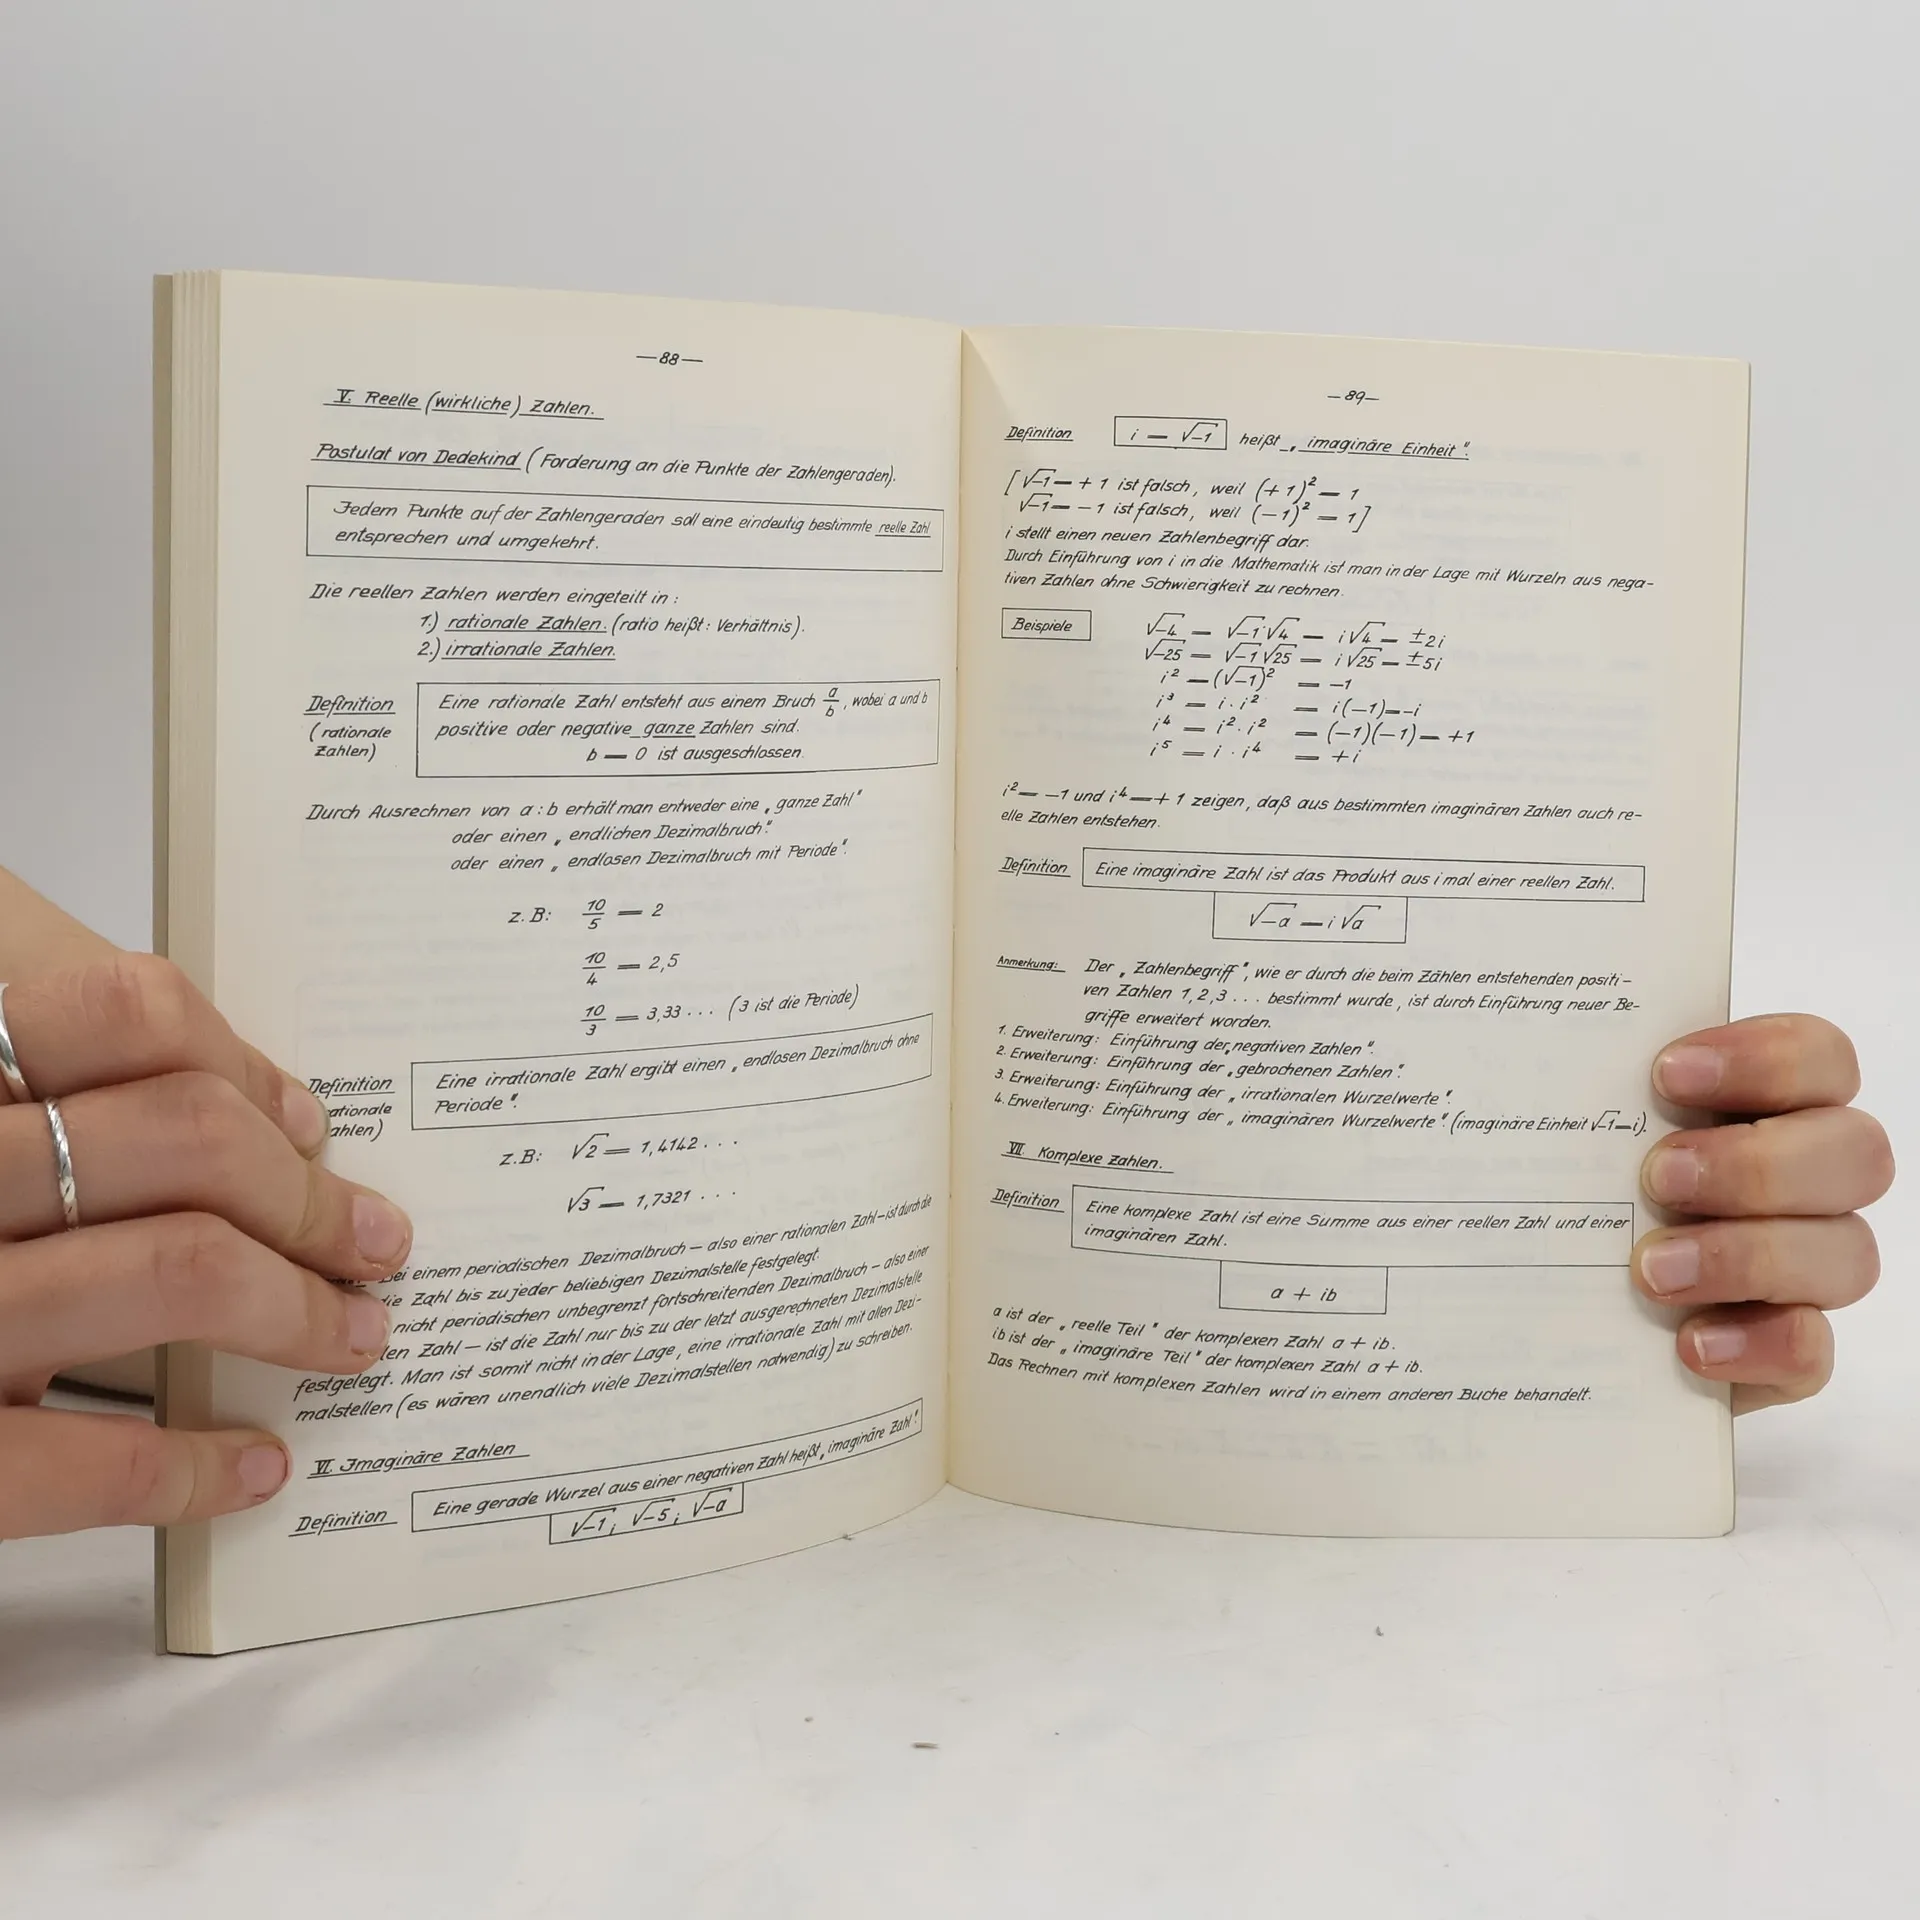 —88—
V. Reelle (wirkliche) Zahlen.
Postulat von Dedekind (Forderung an die Punkte der Zahlengeraden).
Jedem Punkte auf der Zahlengeraden soll eine eindeutig bestimmte reelle Zahl
entsprechen und umgekehrt.
Die reellen Zahlen werden eingeteilt in:
1.) rationale Zahlen. (ratio heißt: Verhältnis).
2.) irrationale Zahlen.
Definition
(rationale
Zahlen)
Eine rationale Zahl entsteht aus einem Bruch a/b, wobei a und b
positive oder negative ganze Zahlen sind.
b = 0 ist ausgeschlossen.
Durch Ausrechnen von a : b erhält man entweder eine „ganze Zahl"
oder einen „endlichen Dezimalbruch".
oder einen „endlosen Dezimalbruch mit Periode".
z.B: 10/5 = 2
10/4 = 2,5
10/3 = 3,33... (3 ist die Periode)
Definition
ationale
ahlen)
Eine irrationale Zahl ergibt einen „endlosen Dezimalbruch ohne
Periode".
z.B: √2 = 1,4142...
√3 = 1,7321...
Bei einem periodischen Dezimalbruch — also einer rationalen Zahl — ist durch die
die Zahl bis zu jeder beliebigen Dezimalstelle festgelegt.
nicht periodischen unbegrenzt fortschreitenden Dezimalbruch — also einer
len Zahl — ist die Zahl nur bis zu der letzt ausgerechneten Dezimalstelle
festgelegt. Man ist somit nicht in der Lage, eine irrationale Zahl mit allen Dezi-
malstellen (es wären unendlich viele Dezimalstellen notwendig) zu schreiben.
VI. Imaginäre Zahlen
Definition
Eine gerade Wurzel aus einer negativen Zahl heißt „imaginäre Zahl".
√-1; √-5; √-a
—89—
Definition i = √-1 heißt „imaginäre Einheit".
[√-1 = +1 ist falsch, weil (+1)² = 1
√-1 = -1 ist falsch, weil (-1)² = 1]
i stellt einen neuen Zahlenbegriff dar.
Durch Einführung von i in die Mathematik ist man in der Lage mit Wurzeln aus nega-
tiven Zahlen ohne Schwierigkeit zu rechnen.
Beispiele
√-4 = √-1·√4 = i√4 = ±2i
√-25 = √-1 √25 = i√25 = ±5i
i² = (√-1)² = -1
i³ = i · i² = i(-1) = -i
i⁴ = i² · i² = (-1)(-1) = +1
i⁵ = i · i⁴ = +i
i² = -1 und i⁴ = +1 zeigen, daß aus bestimmten imaginären Zahlen auch re-
elle Zahlen entstehen.
Definition Eine imaginäre Zahl ist das Produkt aus i mal einer reellen Zahl.
√-a = i√a
Anmerkung: Der „Zahlenbegriff", wie er durch die beim Zählen entstehenden positi-
ven Zahlen 1, 2, 3... bestimmt wurde, ist durch Einführung neuer Be-
griffe erweitert worden.
1. Erweiterung: Einführung der „negativen Zahlen".
2. Erweiterung: Einführung der „gebrochenen Zahlen".
3. Erweiterung: Einführung der „irrationalen Wurzelwerte".
4. Erweiterung: Einführung der „imaginären Wurzelwerte". (imaginäre Einheit √-1 = i).
VII. Komplexe Zahlen.
Definition Eine komplexe Zahl ist eine Summe aus einer reellen Zahl und einer
imaginären Zahl.
a + ib
a ist der „reelle Teil" der komplexen Zahl a + ib.
ib ist der „imaginäre Teil" der komplexen Zahl a + ib.
Das Rechnen mit komplexen Zahlen wird in einem anderen Buche behandelt.